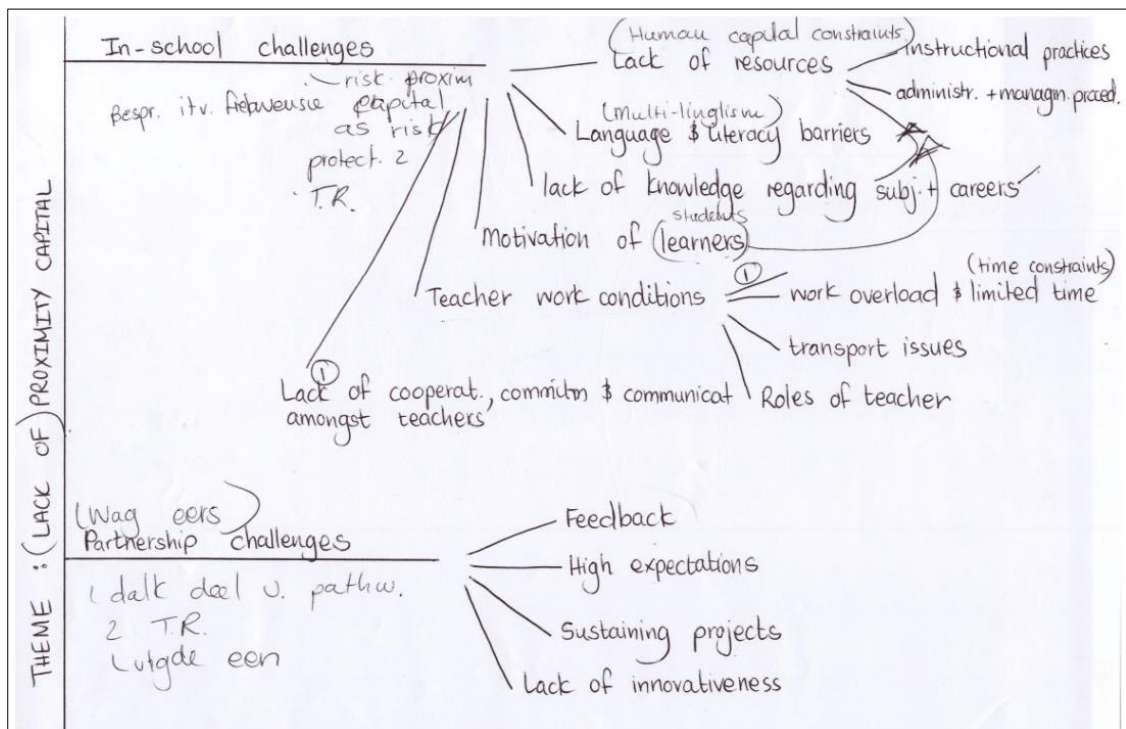 THEME : (LACK OF) PROXIMITY CAPITAL
In-school challenges
risk proxim
Bespr. itv. capital
as risk
protect. 2
T.R.
(Human capital constraints)
Lack of resources
instructional practices
administr. + managm. praed.
(Multi-linglism)
Language & literacy barriers
lack of knowledge regarding subj. + careers
students
Motivation of (learners)
Teacher work conditions
①
(time constraints)
work overload & limited time
transport issues
Roles of teacher
①
Lack of cooperat., commitm & communicat
amongst teachers
(Wag eers)
Partnership challenges
dalk deel v. pathw.
2 T.R.
een
Feedback
High expectations
Sustaining projects
Lack of innovativeness